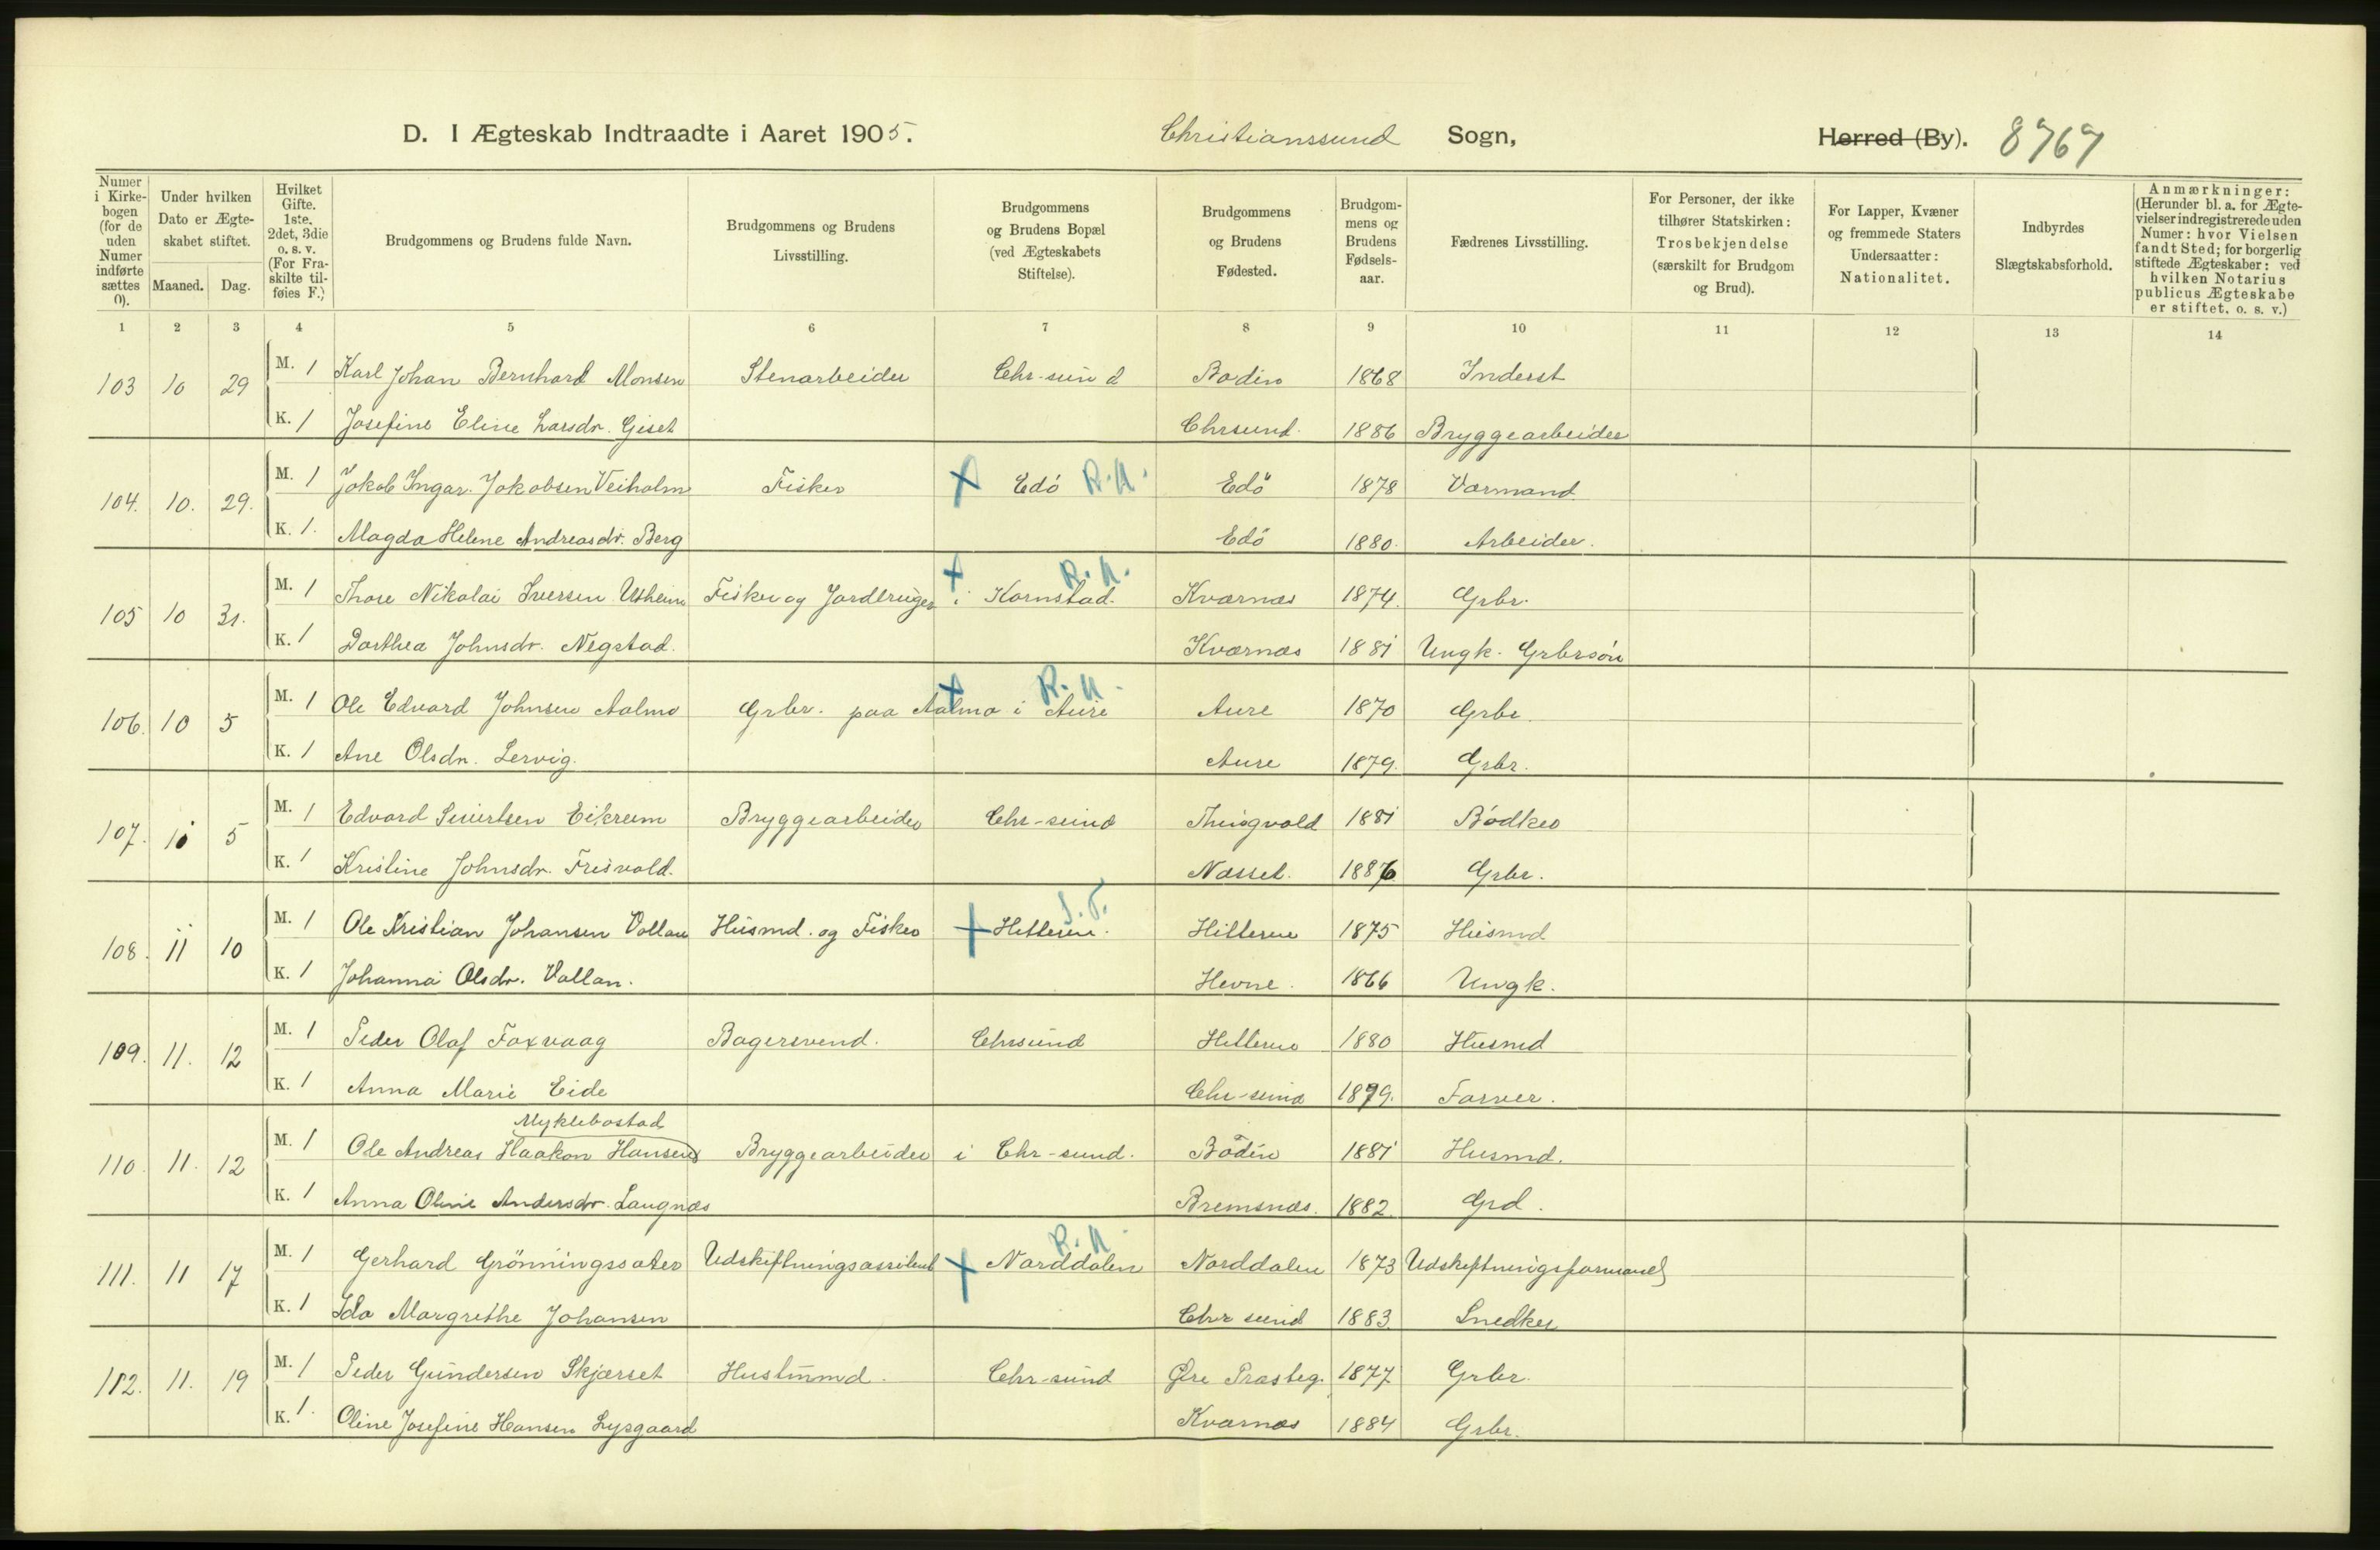 D. I Ægteskab Indtraadte i Aaret 1905. Christianssund Sogn, Herred (By). 8767
Numer i Kirkebogen (for de uden Numer indførte sættes 0).
Under hvilken Dato er Ægteskabet stiftet.
Maaned. Dag.
Hvilket Gifte. 1ste. 2det, 3die o. s. v. (For Fraskilte tilføies F.)
Brudgommens og Brudens fulde Navn.
Brudgommens og Brudens Livsstilling.
Brudgommens og Brudens Bopæl (ved Ægteskabets Stiftelse).
Brudgommens og Brudens Fødested.
Brudgommens og Brudens Fødselsaar.
Fædrenes Livsstilling.
For Personer, der ikke tilhører Statskirken: Trosbekjendelse (særskilt for Brudgom og Brud).
For Lapper, Kvæner og fremmede Staters Undersaatter: Nationalitet.
Indbyrdes Slægtskabsforhold.
Anmærkninger: (Herunder bl. a. for Ægtevielser indregistrerede uden Numer: hvor Vielsen fandt Sted; for borgerlig stiftede Ægteskaber: ved hvilken Notarius publicus Ægteskabet er stiftet, o. s. v.)
1 2 3 4 5 6 7 8 9 10 11 12 13 14
103 10 29 M. 1 Karl Johan Bernhard Monsen Stenarbeider Chr-sund Bodin 1868 Inderst
K. 1 Josefine Eline Larsdr. Giset Chrsund. 1886 Bryggearbeider
104. 10. 29. M. 1 Jakob Ingar. Jakobsen Veiholm Fisker + Edö R.U. Edö 1878 Varmand
K. 1. Magda Helene Andreasdr. Berg Edö 1880. Arbeider.
105 10 31. M. 1 Thore Nikolai Iversen Utheim Fisker og Jordbruger + i Kornstad. R.U. Kværnæs 1874. Grbr.
K. 1 Dorthea Johnsdr. Negstad. Kværnæs 1881 Ungk. Grbrsøn
106. 10 5 M. 1 Ole Edvard Johnsen Aalmo Grbr. paa Aalmo i Aure + R.U. Aure 1870 Grbr.
K. 1 Ane Olsdr. Lervig. Aure 1879. Grbr.
107. 10 5 M. 1 Edvard Sivertsen Eikrem Bryggearbeider Chr-sund Thingvold 1881 Bödker
K. 1 Kristine Johnsdr. Frisvold. Næsset. 1886 Grbr.
108. 11 10 M. 1 Ole Kristian Johansen Vollan Husmd. og Fisker + Hitteren. S.T. Hitteren 1875 Husmd
K. 1 Johanna Olsdr. Vollan. Hevne. 1866 Ungk.
109. 11. 12 M. 1 Peder Olaf Faxvaag Bagersvend. Chrsund Hitteren 1880 Husmd
K. 1 Anna Marie Eide Chr-sund 1879. Farver.
Myklebostad
110. 11. 12 M. 1 Ole Andreas Haakon Hansen Bryggearbeider i Chr-sund. Bodin 1881 Husmd.
K. 1 Anna Oline Andersdr. Langnæs Bremsnæs. 1882. Grd.
111. 11 17 M. 1 Gerhard Grönningssæter Udskiftningsassistent + Norddalen R.U. Norddalen 1873 Udskiftningsformand
K. 1 Ida Margrethe Johansen Chr sund 1883. Snedker
112. 11. 19 M. 1 Peder Gundersen Skjærset Hustømmd. Chr-sund Øre Præsteg. 1877 Grbr.
K. 1. Oline Josefine Hansen Lysgaard Kværnæs 1884 Grbr.